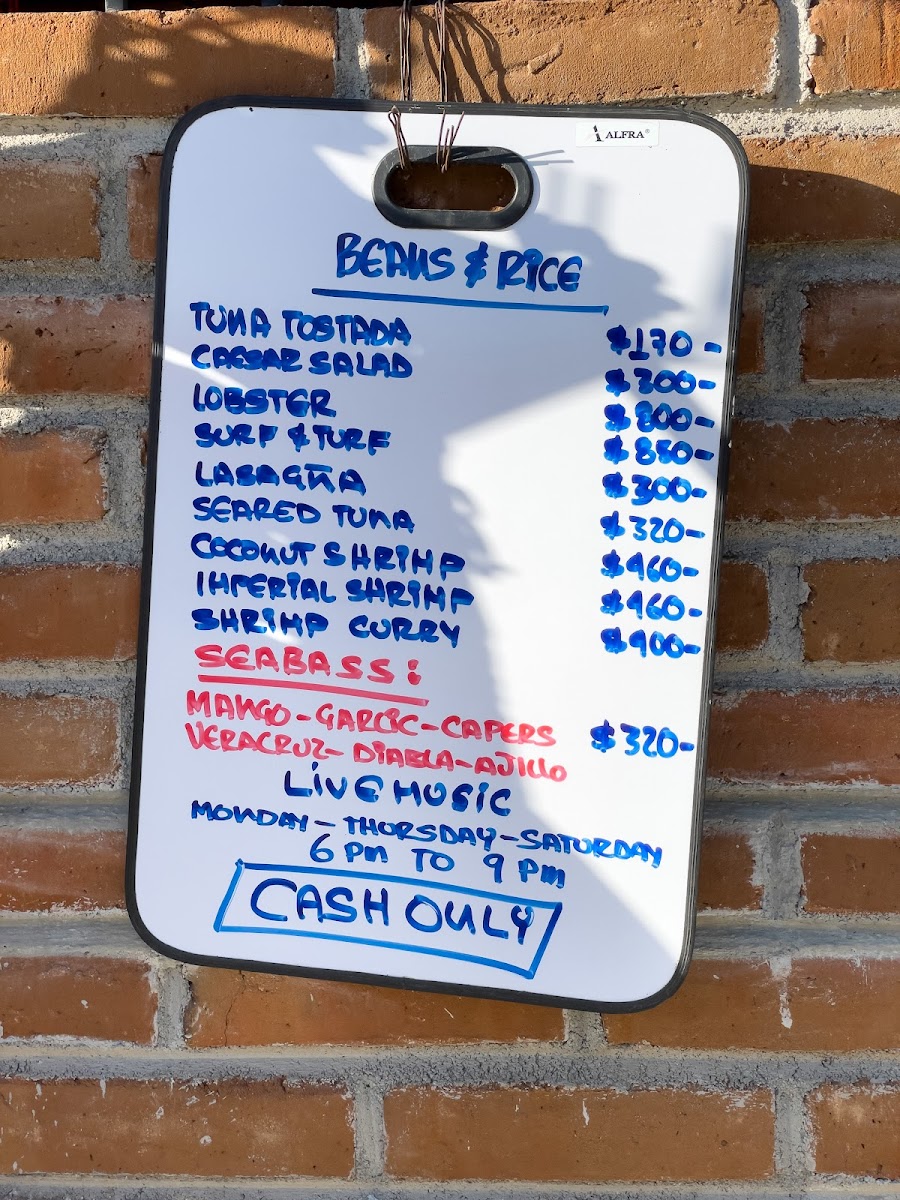 ALFRA®
BEANS & RICE
TUNA TOSTADA $170-
CAESAR SALAD $300-
LOBSTER $800-
SURF & TURF $850-
LASAGÑA $300-
SEARED TUNA $320-
COCONUT SHRIMP $460-
IMPERIAL SHRIMP $460-
SHRIMP CURRY $400-
SEABASS:
MANGO-GARLIC-CAPERS $320-
VERACRUZ-DIABLA-AJILLO
LIVE MUSIC
MONDAY-THURSDAY-SATURDAY
6 PM TO 9 PM
CASH ONLY